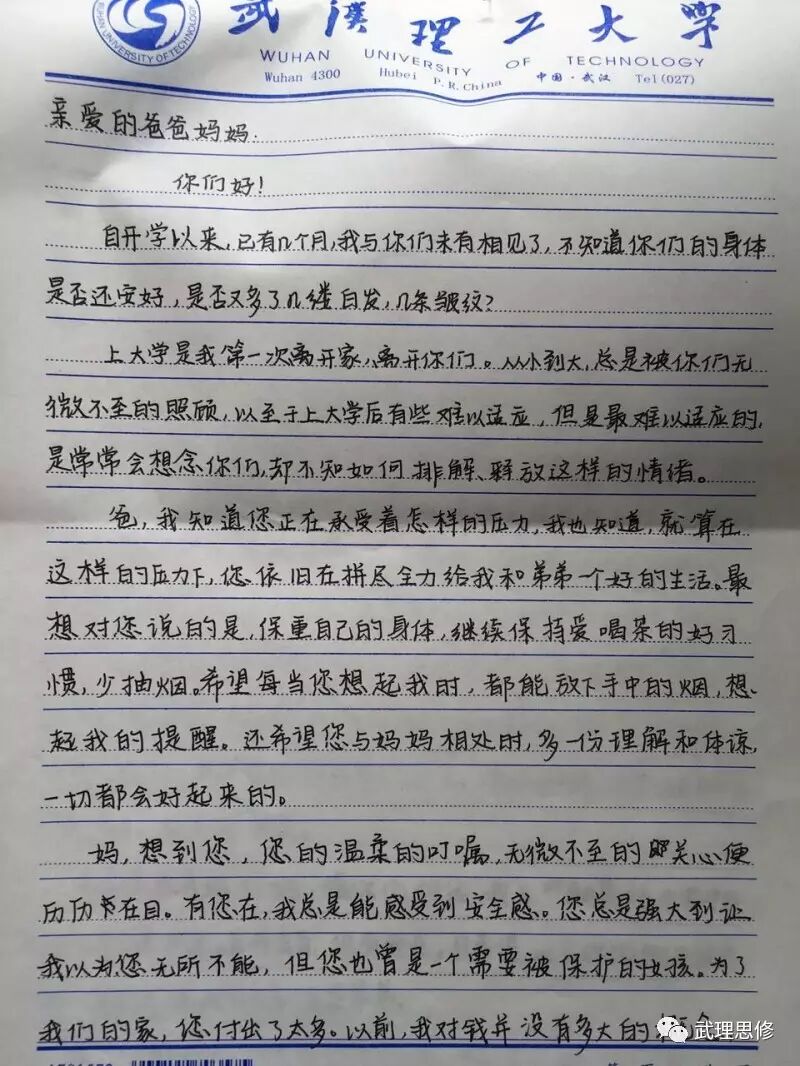 WUHAN UNIVERSITY OF TECHNOLOGY
武漢理工大学
WUHAN UNIVERSITY OF TECHNOLOGY
Wuhan 4300 Hubei P.R.China 中国·武汉 Tel(027)
亲爱的爸爸妈妈:
你们好!
自开学以来,已有几个月,我与你们未有相见了,不知道你们的身体
是否还安好,是否又多了几缕白发,几条皱纹?
上大学是我第一次离开家,离开你们。从小到大,总是被你们无
微不至的照顾,以至于上大学后有些难以适应,但是最难以适应的,
是常常会想念你们,却不知如何排解、释放这样的情绪。
爸,我知道您正在承受着怎样的压力,我也知道,就算在
这样的压力下,您依旧在拼尽全力给我和弟弟一个好的生活。最
想对您说的是,保重自己的身体,继续保持爱喝茶的好习
惯,少抽烟。希望每当您想起我时,都能放下手中的烟,想
起我的提醒。还希望您与妈妈相处时,多一份理解和体谅,
一切都会好起来的。
妈,想到您,您的温柔的叮嘱,无微不至的关心便
历历在目。有您在,我总是能感受到安全感。您总是强大到让
我以为您无所不能,但您也曾是一个需要被保护的女孩。为了
我们的家,您付出了太多。以前,我对钱并没有多大的
武理思修